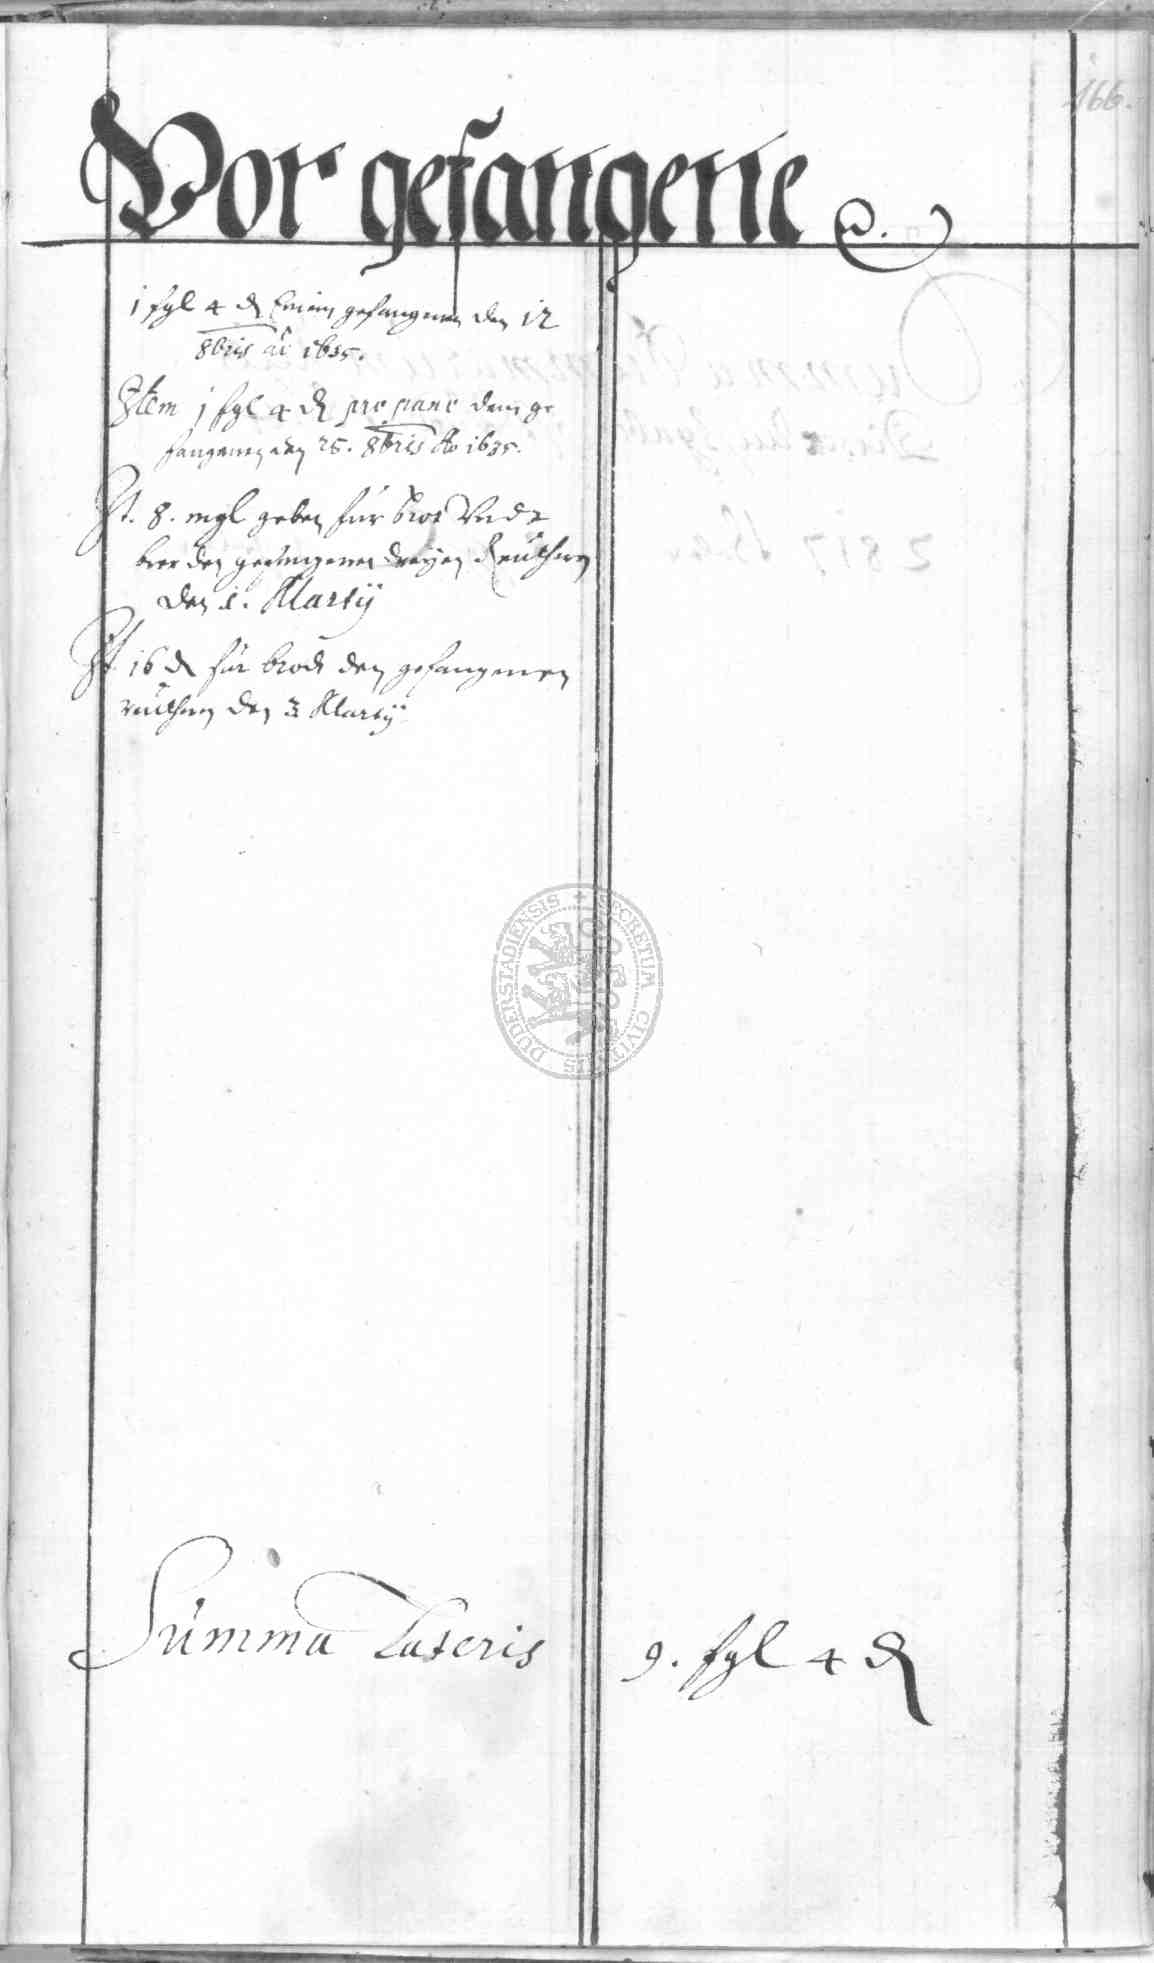 166.
Vor gefangene
1 ßgl 4 ₰ Einem gefangenen den 12
8bris ao 1635.
Item 1 ßgl 4 ₰ pro pane dem ge
fangenen den 25. 8bris Ao 1635.
It. 8. mgl geben für brot Undt
bier den gefangenen dreyen Reuthern
den 1. Martij
It 16 ₰ für brodt den gefangenen
reuthern den 3 Martij
DUDERSTADIENSIS SECRETUM CIVITATIS
Summa Lateris 9. ßgl 4 ₰